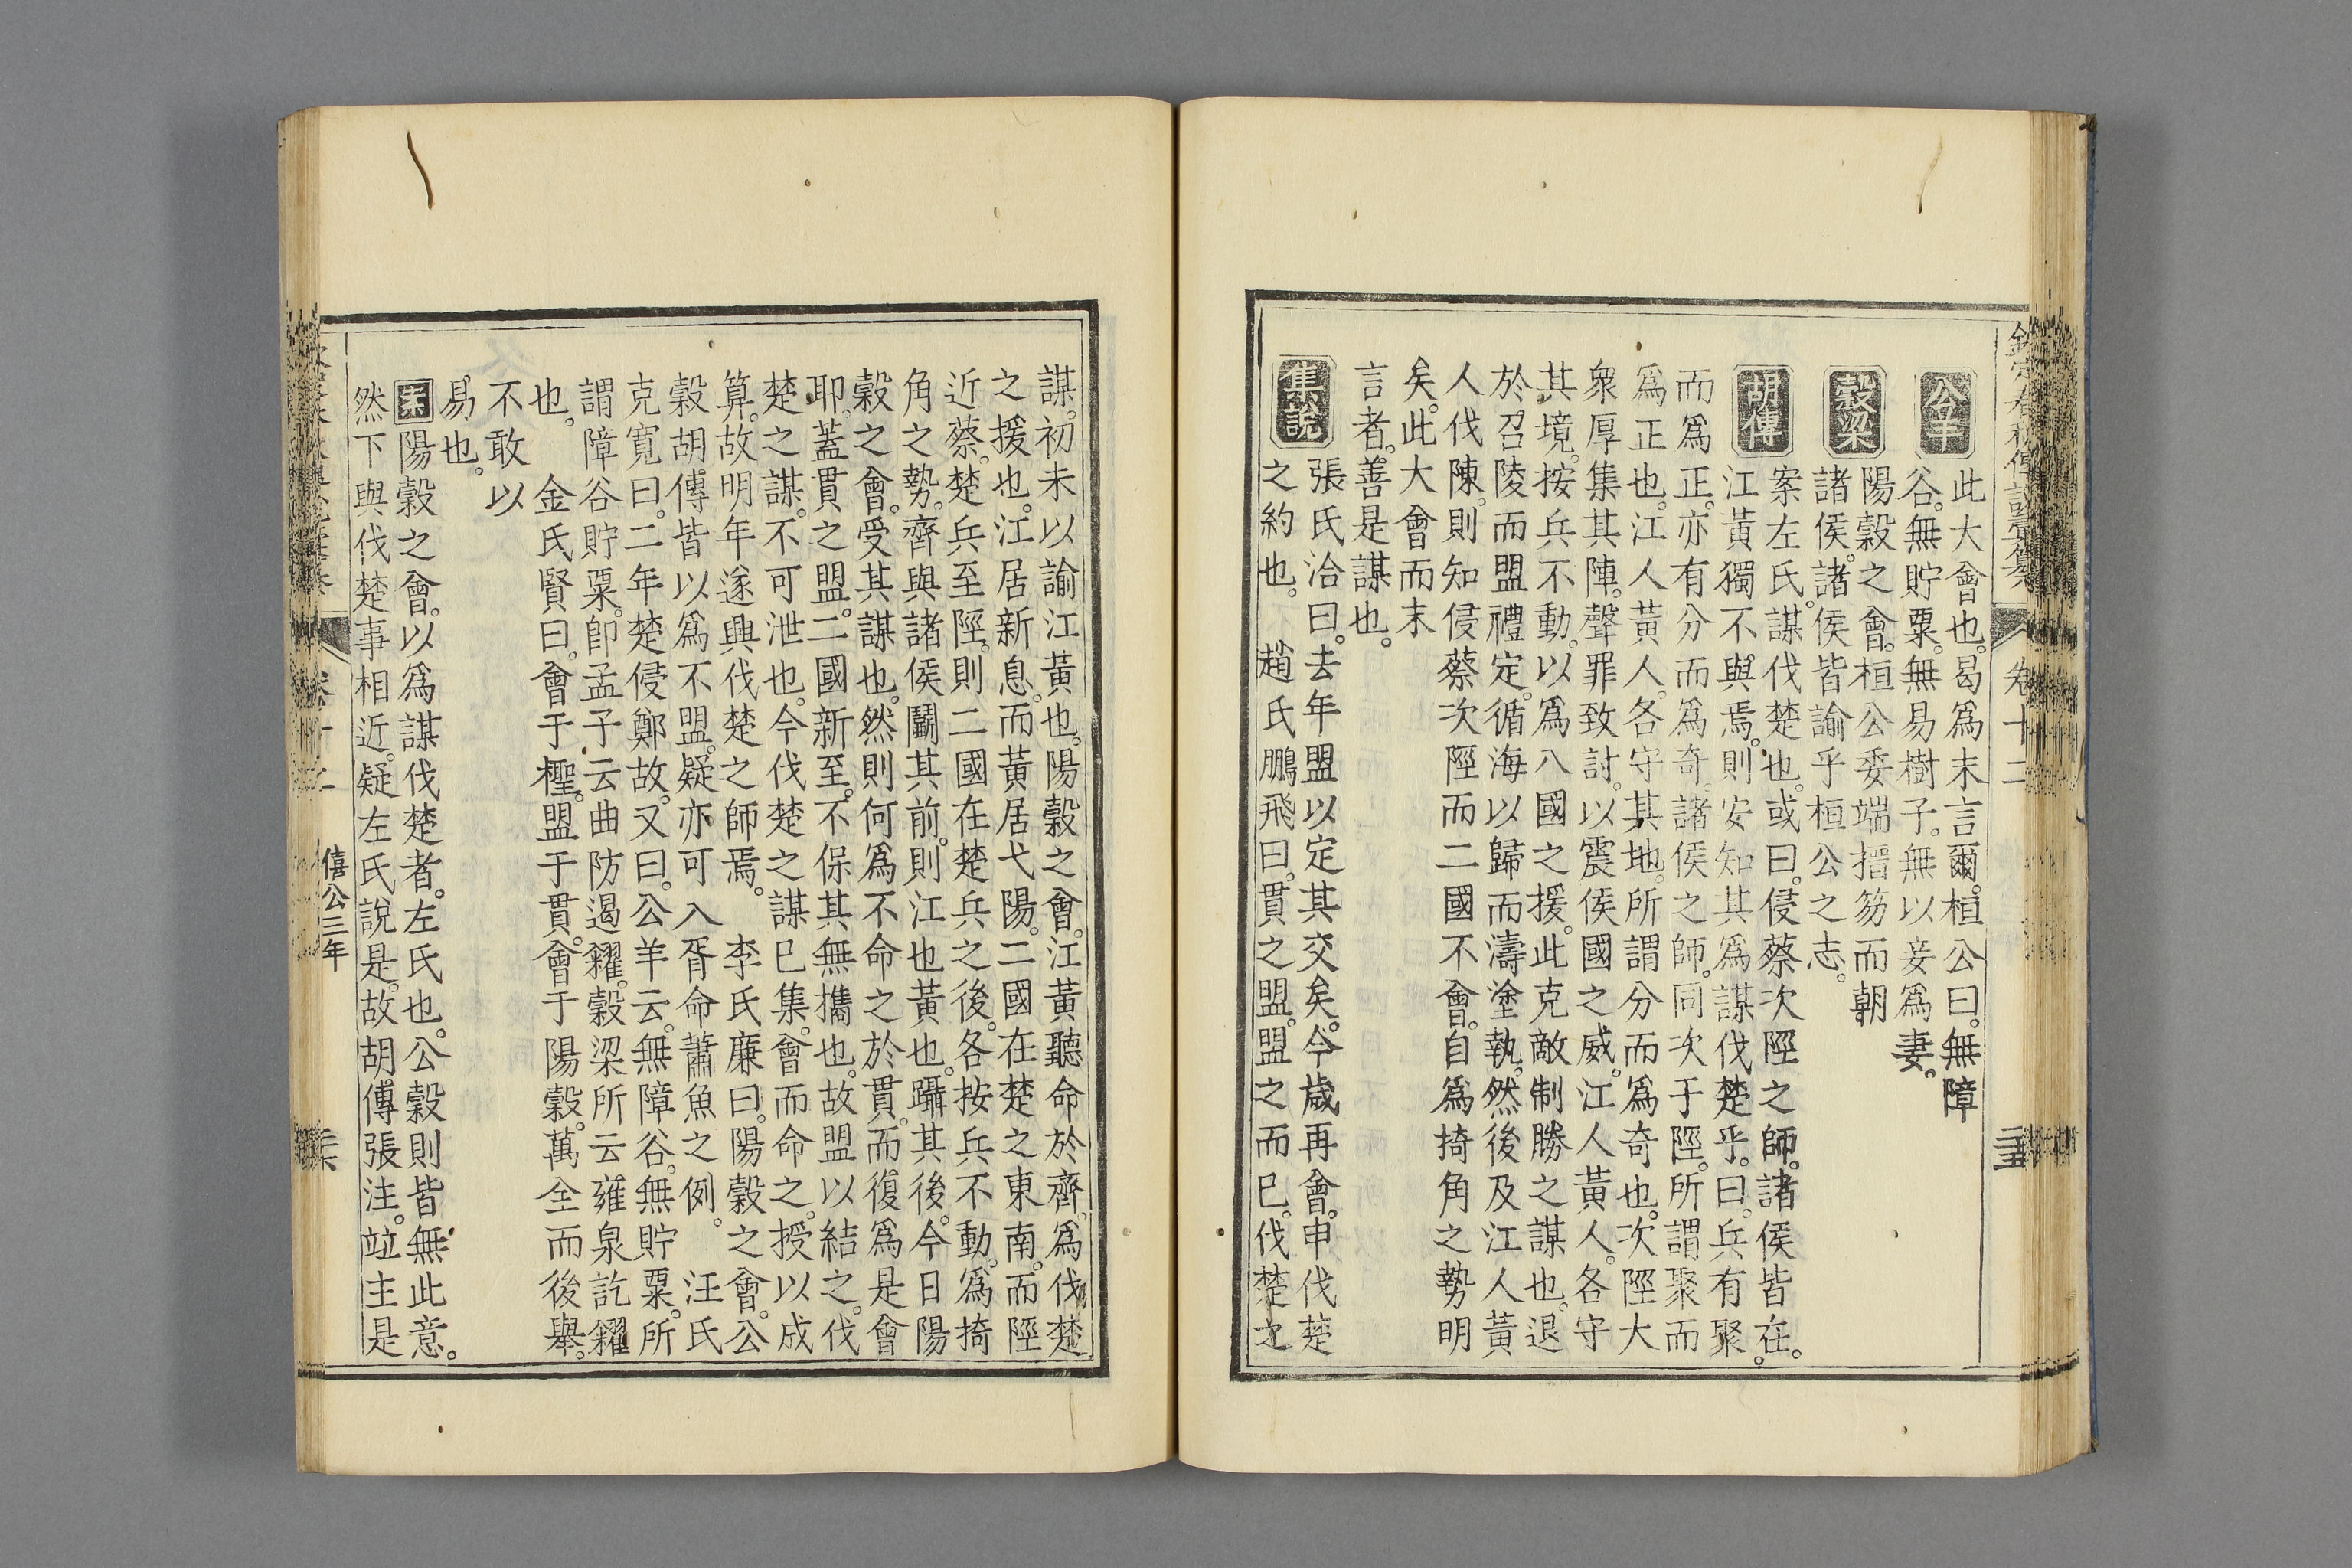 欽定春秋傳說彙纂 卷十二
公羊 此大會也。曷爲末言爾。桓公曰。無障
谷。無貯粟。無易樹子。無以妾爲妻。
穀梁 陽穀之會。桓公委端搢笏而朝
諸侯。諸侯皆諭乎桓公之志。
案左氏。謀伐楚也。或曰。侵蔡次陘之師。諸侯皆在。
胡傳 江黃獨不與焉。則安知其爲謀伐楚乎。曰。兵有聚
而爲正。亦有分而爲奇。諸侯之師。同次于陘。所謂聚而
爲正也。江人黃人。各守其地。所謂分而爲奇也。次陘大
衆。厚集其陣。聲罪致討。以震侯國之威。江人黃人。各守
其境。按兵不動。以爲八國之援。此克敵制勝之謀也。退
於召陵而盟禮定。循海以歸而濤塗執。然後及江人黃
人伐陳。則知侵蔡次陘而二國不會。自爲掎角之勢明
矣。此大會而末
言者。善是謀也。
集說 張氏洽曰。去年盟以定其交矣。今歲再會。申伐楚
之約也。 趙氏鵬飛曰。貫之盟。盟之而已。伐楚之
謀。初未以諭江黃也。陽穀之會。江黃聽命於齊。爲伐楚
之援也。江居新息。而黃居弋陽。二國在楚之東南。而陘
近蔡。楚兵至陘。則二國在楚兵之後。各按兵不動。爲掎
角之勢。齊與諸侯鬭其前。則江也黃也。躡其後。今日陽
穀之會。受其謀也。然則何爲不命之於貫。而復爲是會
耶。蓋貫之盟。二國新至。不保其無攜也。故盟以結之。伐
楚之謀。不可泄也。今伐楚之謀已集。會而命之。授以成
算。故明年遂興伐楚之師焉。 李氏廉曰。陽穀之會。公
穀胡傳皆以爲不盟。疑亦可入胥命蕭魚之例。 汪氏
克寬曰。二年楚侵鄭故。又曰。公羊云。無障谷。無貯粟。所
謂障谷貯粟。卽孟子云曲防遏糴。穀梁所云雍泉訖糴
也。 金氏賢曰。會于檉。盟于貫。會于陽穀。萬全而後舉。
不敢以
易也。
案 陽穀之會。以爲謀伐楚者。左氏也。公穀則皆無此意。
然下與伐楚事相近。疑左氏說是。故胡傳張洼。竝主是
僖公三年